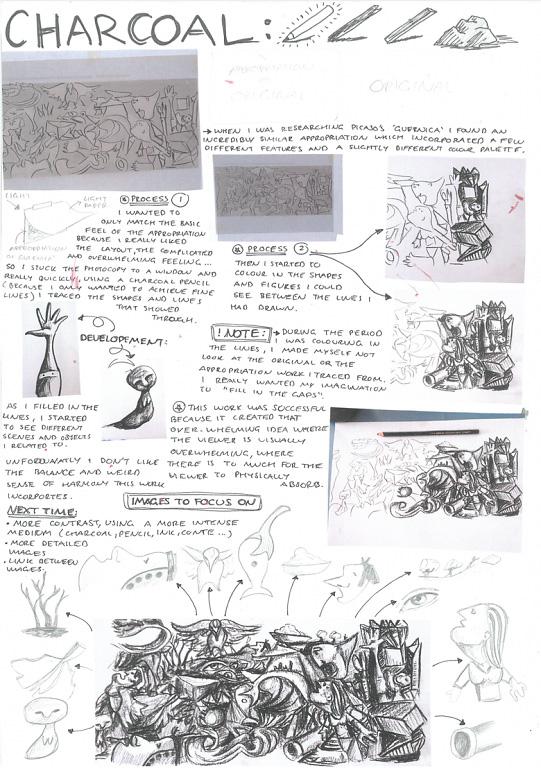 CHARCOAL:
APPROPRIATION
ORIGINAL
ORIGINAL
→ WHEN I WAS RESEARCHING PICASOS 'GUERNICA' I FOUND AN
INCREDIBLY SIMILAR APPROPRIATION WHICH INCORPORATED A FEW
DIFFERENT FEATURES AND A SLIGHTLY DIFFERENT COLOUR PALETTE.
LIGHT
LIGHT
PAPER
APPROPRIATION
OF GUERNICA
PROCESS 1
I WANTED TO
ONLY MATCH THE BASIC
FEEL OF THE APPROPRIATION
BECAUSE I REALLY LIKED
THE LAYOUT, THE COMPLICATED
AND OVERWHELMING FEELING...
SO I STUCK THE PHOTOCOPY TO A WINDOW AND
REALLY QUICKLY, USING A CHARCOAL PENCIL
(BECAUSE I ONLY WANTED TO ACHIEVE FINE
LINES) I TRACED THE SHAPES AND LINES
THAT SHOWED
THROUGH.
PROCESS 2
THEN I STARTED TO
COLOUR IN THE SHAPES
AND FIGURES I COULD
SEE BETWEEN THE LINES I
HAD DRAWN.
DEVELOPEMENT:
! NOTE: → DURING THE PERIOD
I WAS COLOURING IN
THE LINES, I MADE MYSELF NOT
LOOK AT THE ORIGINAL OR THE
APPROPRIATION WORK I TRACED FROM.
I REALLY WANTED MY IMAGINATION
TO "FILL IN THE GAPS".
AS I FILLED IN THE
LINES, I STARTED
TO SEE DIFFERENT
SCENES AND OBJECTS
I RELATED TO.
THIS WORK WAS SUCCESSFUL
BECAUSE IT CREATED THAT
OVER-WHELMING IDEA WHERE
THE VIEWER IS USUALLY
OVERWHELMING, WHERE
THERE IS TO MUCH FOR THE
VIEWER TO PHYSICALLY
ABSORB.
UNFORTUNATLY I DON'T LIKE
THE BALANCE AND WEIRD
SENSE OF HARMONY THIS WORK
INCORPORTES.
IMAGES TO FOCUS ON
NEXT TIME:
• MORE CONTRAST, USING A MORE INTENSE
MEDIUM (CHARCOAL, PENCIL, INK, CONTE...)
• MORE DETAILED
IMAGES
• LINK BETWEEN
IMAGES.